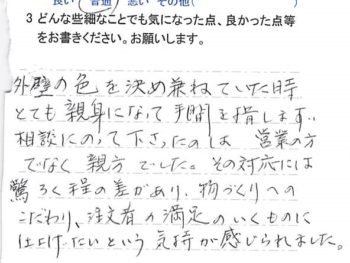 良い 普通 悪い その他(
3 どんな些細なことでも気になった点、良かった点等
をお書きください。お願いします。
外壁の色を決め兼ねていた時
とても親身になって手間を惜します、
相談にのって下さったのは 営業の方
でなく親方でした。その対応には
驚ろく程の差があり、物づくりへの
こだわり、注文者の満足のいくものに
仕上げたいという気持が感じられました。